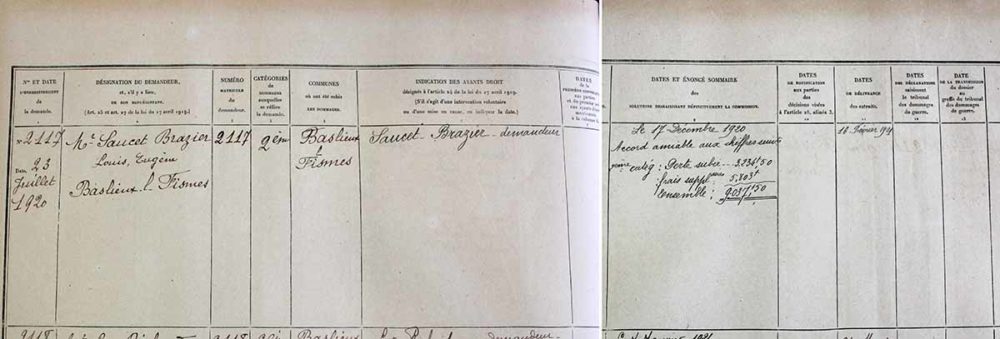 Nos ET DATE
D'ENREGISTREMENT
de
la demande.
DÉSIGNATION DU DEMANDEUR,
et, s'il y a lieu,
DE SON MANDATAIRE.
(Art. 25 et 27 de la loi du 17 avril 1919.)
NUMÉRO
MATRICULE
du
demandeur.
CATÉGORIES
de
DOMMAGES
auxquelles
se réfère
la demande.
COMMUNES
où ont été subis
LES DOMMAGES.
INDICATION DES AYANTS DROIT
désignés à l'article 24 de la loi du 17 avril 1919.
(S'il s'agit d'une intervention volontaire
ou d'une mise en cause, en indiquer la date.)
DATES
DE LA
PREMIÈRE
DATES ET ÉNONCÉ SOMMAIRE
des
SOLUTIONS DESSAISISSANT DÉFINITIVEMENT LA COMMISSION.
DATES
DE NOTIFICATION
aux parties
des
décisions visées
à l'article 28, alinéa 3.
DATES
DE DÉLIVRANCE
des extraits.
DATES
DES DÉCLARATIONS
saisissant
le tribunal
des dommages
de guerre.
DATE
DE LA TRANSMISSION
du dossier
au
greffe du tribunal
des dommages
de guerre.
2117
Date, 23
Juillet
1920
Mr Saucet Brazier
Louis, Eugène
Baslieux l. Fismes
2117
2ème
Baslieux
l
Fismes
Saucet - Brazier - demandeur
Le 17 Décembre 1920
Accord amiable aux chiffres
catég: Perte subie 3.234f,50
frais suppl 5.803f
Ensemble: 9.037f,50
18 Février 1921
2118
2118
Baslieux
demandeur